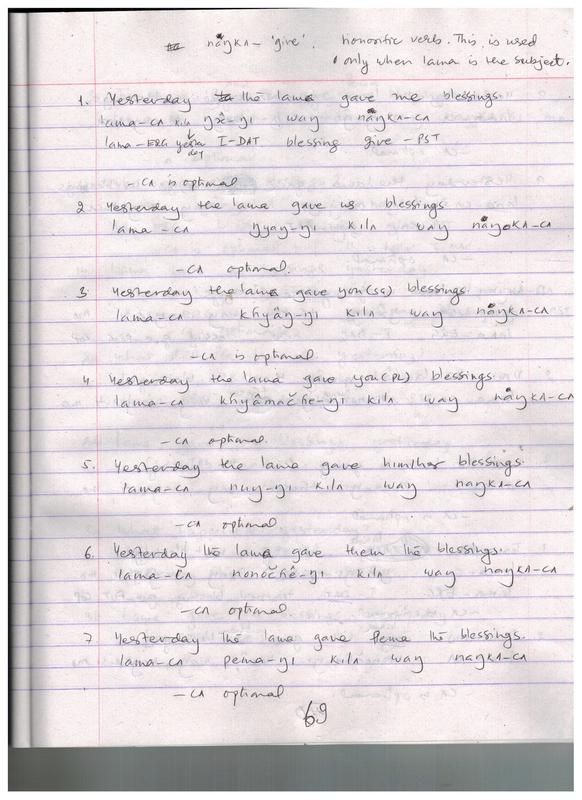 nâŋkʌ- 'give'. honorific verb. This is used
only when lama is the subject.
1. Yesterday the lama gave me blessings.
lama-cʌ kilʌ ŋx̂-ŋi way nâŋkʌ-cʌ
lama-ERG yesterday I-DAT blessing give-PST
-cʌ is optimal
2 Yesterday the lama gave us blessings
lama-cʌ ŋyaŋ-ŋi kilʌ way nâŋkʌ-cʌ
-cʌ optimal.
3. Yesterday the lama gave you(SG) blessings.
lama-cʌ khyâŋ-ŋi kilʌ way nâŋkʌ-cʌ
-cʌ is optimal.
4. Yesterday the lama gave you(PL) blessings.
lama-cʌ khyâmač̌he-ŋi kilʌ way nâŋkʌ-cʌ
-cʌ optimal.
5. Yesterday the lama gave him/her blessings.
lama-cʌ nuŋ-ŋi kilʌ way naŋkʌ-cʌ
-cʌ optimal
6. Yesterday the lama gave them the blessings.
lama-cʌ nonoč̌hê-ŋi kilʌ way naŋkʌ-cʌ
-cʌ optimal.
7 Yesterday the lama gave Pema the blessings.
lama-cʌ pema-ŋi kilʌ way naŋkʌ-cʌ
-cʌ optimal
69